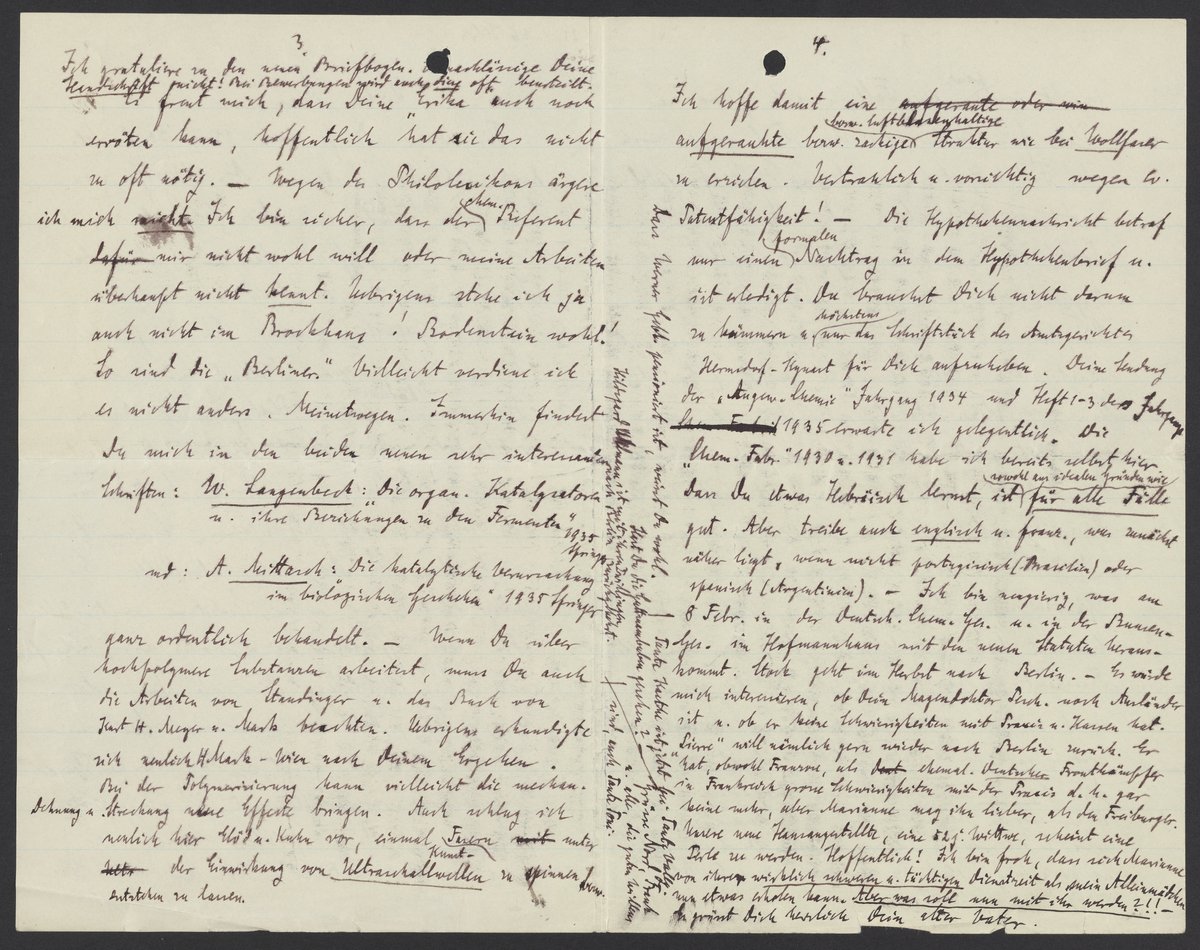 3
Ich gratuliere zu den neuen Briefbogen. Vernachlässige Deine
Handschrift nicht! Bei Bewerbungen wird auch diese oft beurteilt.
Es freut mich, dass Deine Erika auch noch
erröten kann, hoffentlich hat sie das nicht
zu oft nötig. — Wegen des Philolexikons ärgere
ich mich nicht. Ich bin sicher, dass der chem. Referent
dafür mir nicht wohl will oder meine Arbeiten
überhaupt nicht kennt. Uebrigens stehe ich ja
auch nicht im Brockhaus! Bodenstein wohl!
So sind die „Berliner". Vielleicht verdiene ich
es nicht anders. Meinetwegen. Immerhin findest
Du mich in den beiden neuen sehr interessanten
Schriften: W. Langenbeck: Die organ. Katalysatoren
u. ihre Beziehungen zu den Fermenten"
1935
Springer
und: A. Mittasch: Die katalytische Verursachung
im biologischen Geschehen" 1935 Springer
ganz ordentlich behandelt. — Wenn Du über
hochpolymere Substanzen arbeitest, muss Du auch
die Arbeiten von Staudinger u. das Buch von
Kurt H. Meyer u. Mark beachten. Uebrigens erkundigte
sich neulich H. Mark-Wien nach Deinem Ergehen.
Bei der Polymerisierung kann vielleicht die mechan.
Dehnung u. Streckung neue Effekte bringen. Auch schlug ich
neulich hier Elöd u. Kuhn vor, einmal Kunst-Fasern mit unter
der Einwirkung von Ultraschallwellen zu spinnen bzw.
entstehen zu lassen.
4.
Ich hoffe damit eine aufgeraute oder win
bezw. luftblasenhaltige
aufgerauhte bezw. zackige Struktur wie bei Wollfaser
zu erzielen. Vertraulich u. vorsichtig wegen ev.
Patentfähigkeit! — Die Hypothekennachricht betraf
nur einen formalen Nachtrag in dem Hypothekenbrief u.
ist erledigt. Du brauchst Dich nicht darum
zu kümmern u. höchstens nur das Schriftstück des Amtsgerichtes
Hermsdorf-Kynast für Dich aufzuheben. Deine Sendung
der „Angew. Chemie" Jahrgang 1934 und Heft 1-3 des Jahrgangs
Chem. Fabrik 1935 erwarte ich gelegentlich. Die
„Chem. Fabr." 1930 u. 1931 habe ich bereits selbst hier.
Dass Du etwas Hebräisch lernst, ist sowohl aus idealen Gründen wie für alle Fälle
gut. Aber treibe auch englisch u. franz., was zunächst
näher liegt, wenn nicht portugisisch (Brasilien) oder
spanisch (Argentinien). — Ich bin neugierig, was am
8 Febr. in der Deutsch. Chem. Ges. u. in der Bunsen-
Ges. im Hofmannhaus mit den neuen Statuten heraus-
kommt. Stock geht im Herbst nach Berlin. — Es würde
mich interessieren, ob Dein Magendoktor Pesch. noch Ausländer
ist u. ob er keine Schwierigkeiten mit Praxis u. Kassen hat.
„Pierre" will nämlich gern wieder nach Berlin zurück. Er
hat, obwohl Franzose, als Deut ehemal. Deutscher Frontkämpfer
in Frankreich grosse Schwierigkeiten mit der Praxis d. h. gar
keine mehr, aber Marianne mag ihn lieber, als den Freiburger.
Unsere neue Hausangestellte, eine 52j. Wittwe, scheint eine
Perle zu werden. Hoffentlich! Ich bin froh, dass sich Marianne
von ihrem wirklich schweren u. tüchtigen Dienstzeit als mein Alleinmädchen
nun etwas erholen kann. Aber was soll nun mit ihr werden?!! —
Es grüsst Dich herzlich Dein alter Vater.
Dass Werner Gebb. pensioniert ist, weisst Du wohl.
Tante Käthe ist jetzt bei Tante Vally
Hast Du die beiden gesehen?
Grüsse Dorf Frank
u. alle die guten wollen
Hildegard ist mit ihren Zwillingen
nach Berlin zurückgekehrt.
und auch Tante Toni.